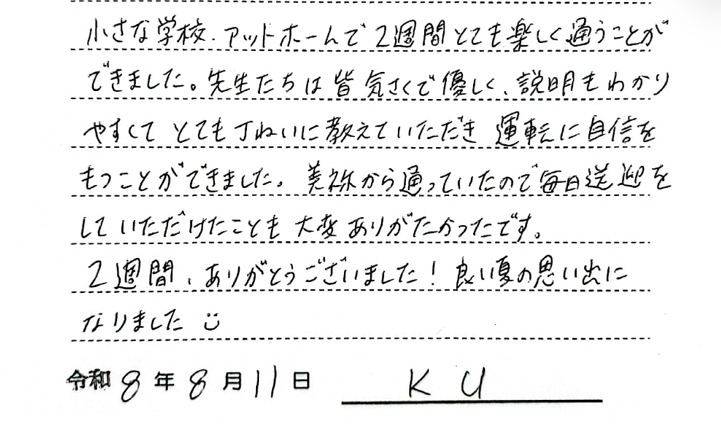 小さな学校、アットホームで2週間とても楽しく通うことが
できました。先生たちは皆気さくで優しく、説明もわかり
やすくてとても丁ねいに教えていただき運転に自信を
もつことができました。美祢から通っていたので毎日送迎を
していただけたことも大変ありがたかったです。
2週間、ありがとうございました！良い夏の思い出に
なりました
令和8年8月11日 K U